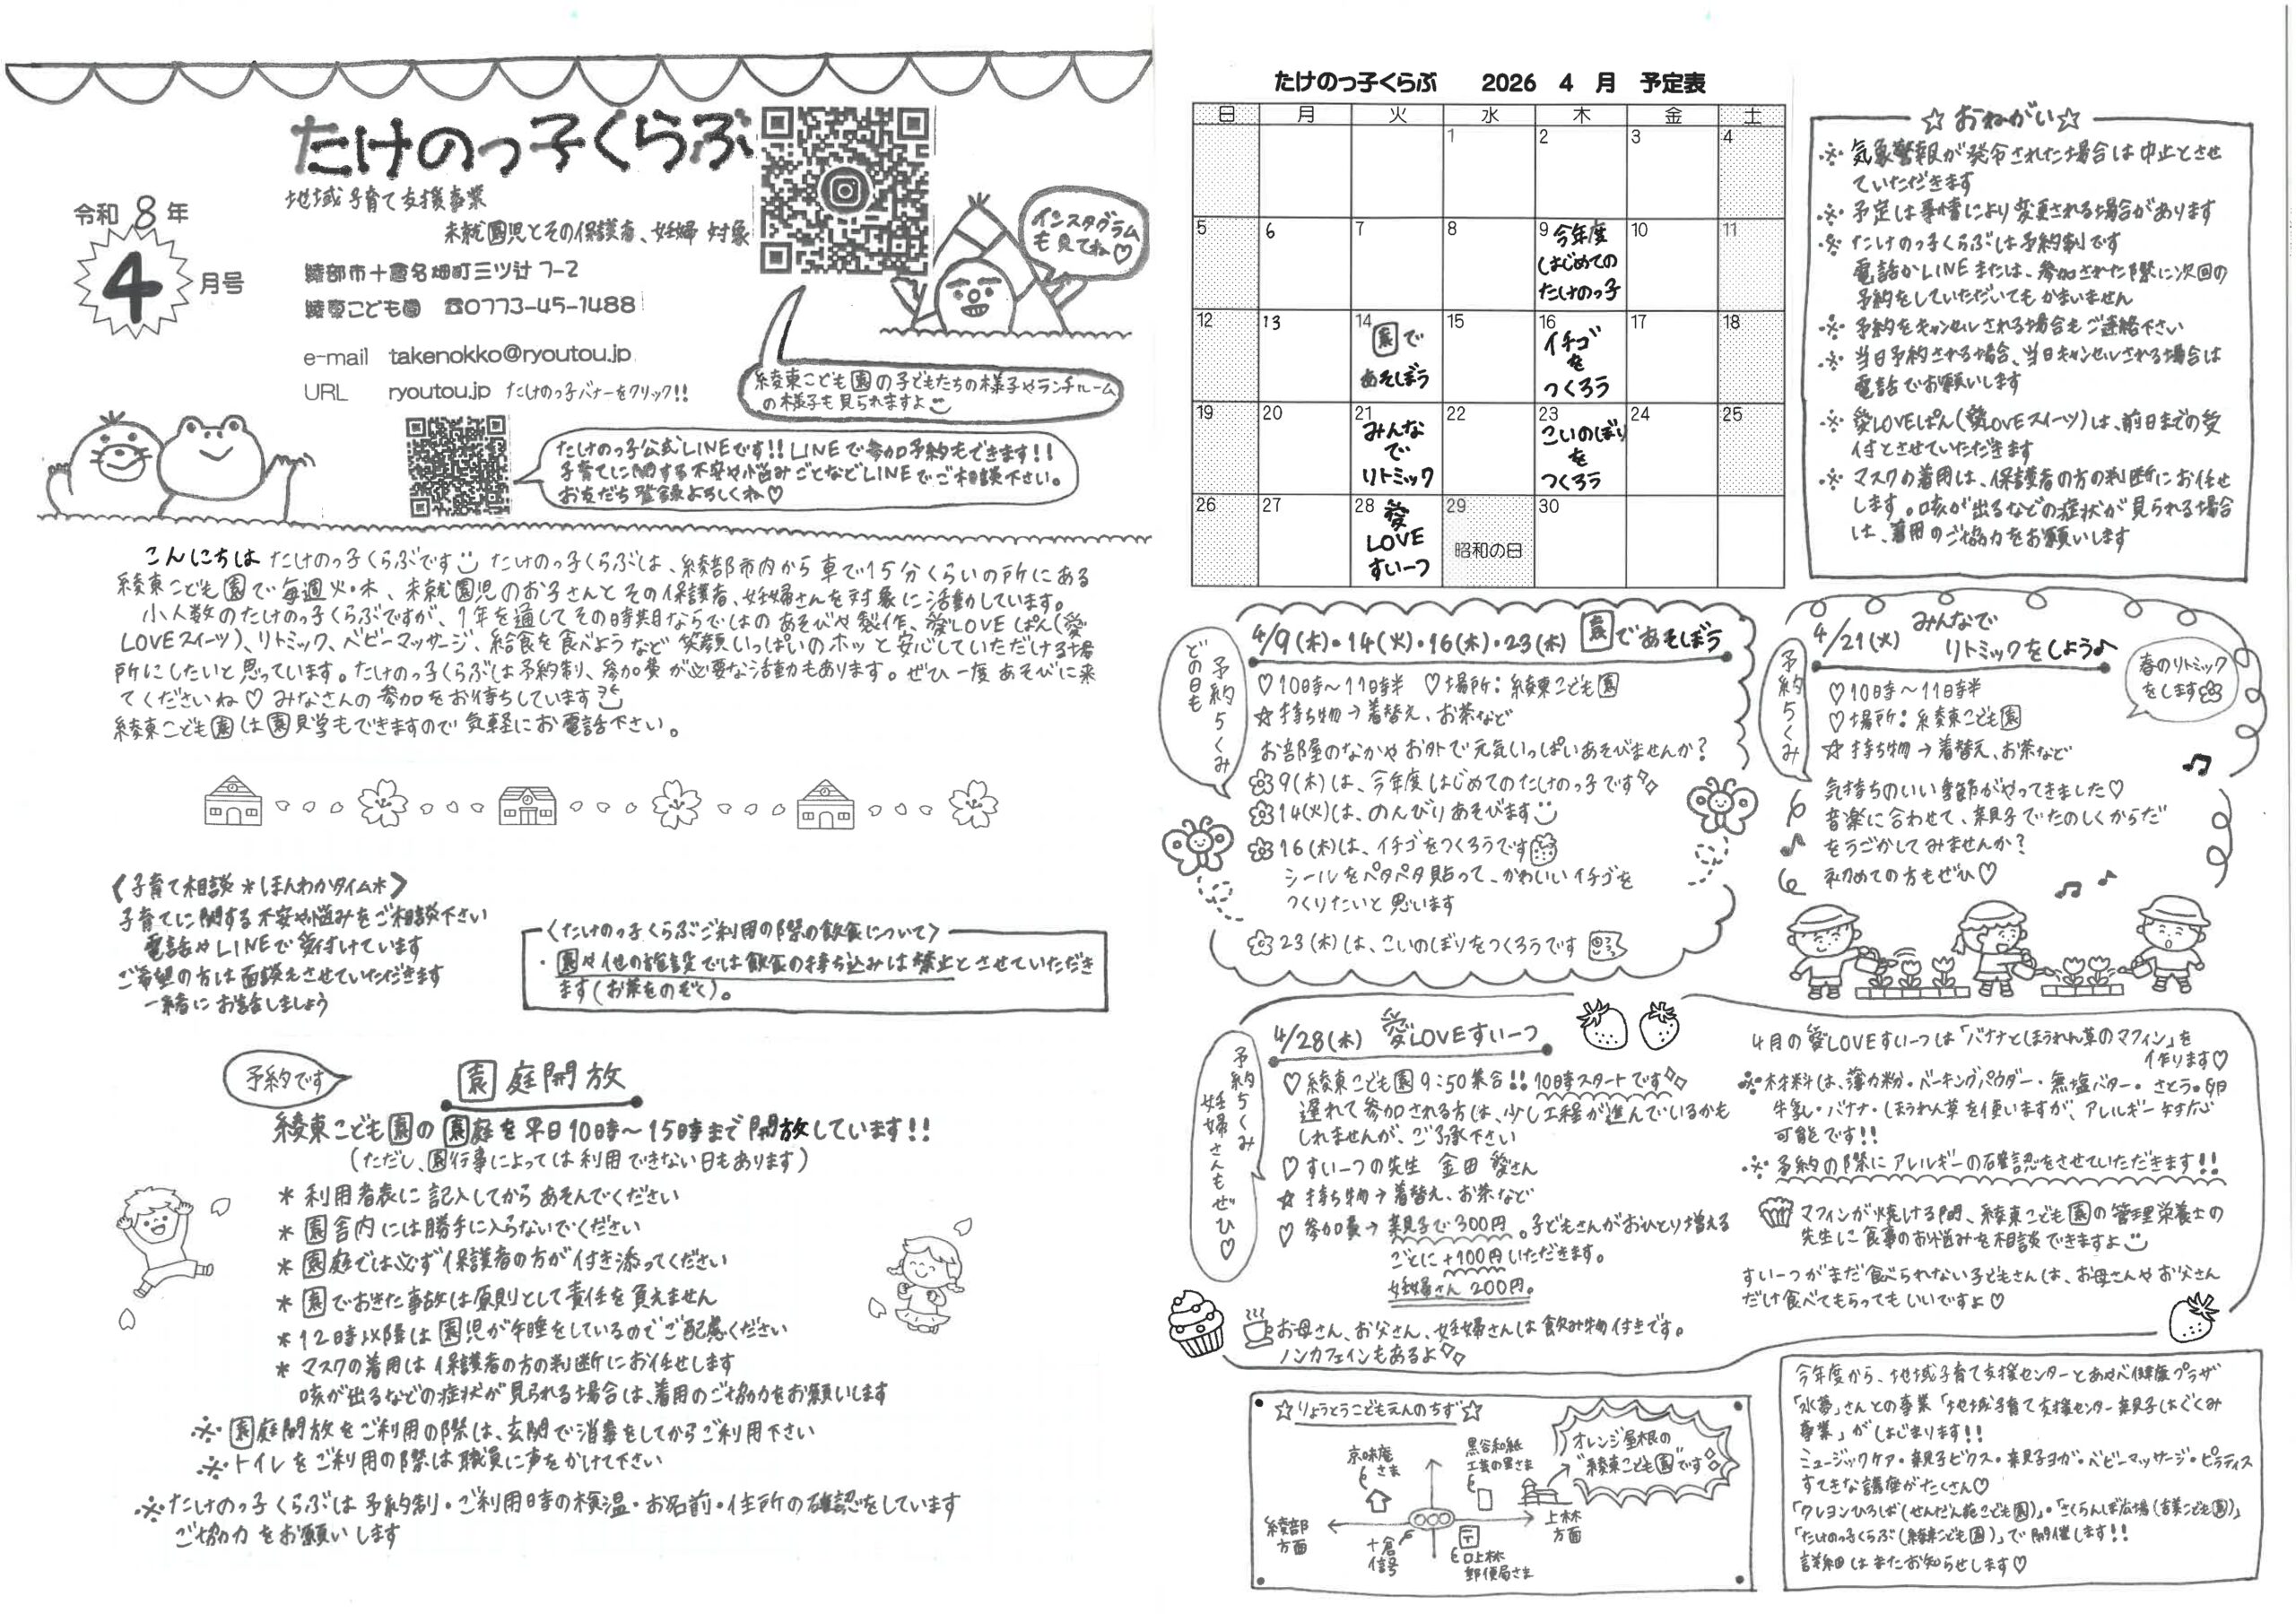 たけのっ子くらぶ
地域子育て支援事業
未就園児とその保護者、妊婦 対象
令和 8 年
4 月号
綾部市十倉名畑町三ツ辻 7-2
綾東こども園 ☎0773-45-1488
e-mail takenokko@ryoutou.jp
URL ryoutou.jp たけのっ子バナーをクリック!!
インスタグラム
も見てね♡
綾東こども園の子どもたちの様子やランチルーム
の様子も見られますよ
たけのっ子公式LINEです!! LINEで参加予約もできます!!
子育てに関する不安や悩みごとなどLINEでご相談下さい。
お友だち登録よろしくね♡
こんにちは たけのっ子くらぶです たけのっ子くらぶは、綾部市内から車で15分くらいの所にある
綾東こども園で毎週火・木、未就園児のお子さんとその保護者、妊婦さんを対象に活動しています。
小人数のたけのっ子くらぶですが、1年を通してその時期ならではのあそびや製作、愛LOVEぱん(愛
LOVEスイーツ)、リトミック、ベビーマッサージ、給食を食べようなど笑顔いっぱいのホッと安心していただける場
所にしたいと思っています。たけのっ子くらぶは予約制、参加費が必要な活動もあります。ぜひ一度あそびに来
てくださいね♡ みなさんの参加をお待ちしています
綾東こども園は園見学もできますので気軽にお電話下さい。
〈子育て相談 *ほんわかタイム*〉
子育てに関する不安や悩みをご相談下さい
電話やLINEで受付けています
ご希望の方は面談もさせていただきます
一緒にお話しましょう
〈たけのっ子くらぶご利用の際の飲食について〉
・園や他の施設では飲食の持ち込みは禁止とさせていただき
ます(お茶をのぞく)。
予約です
園庭開放
綾東こども園の園庭を平日10時~15時まで開放しています!!
(ただし、園行事によっては利用できない日もあります)
* 利用者表に記入してからあそんでください
* 園舎内には勝手に入らないでください
* 園庭では必ず保護者の方が付き添ってください
* 園でおきた事故は原則として責任を負えません
* 12時以降は園児が午睡をしているのでご配慮ください
* マスクの着用は保護者の方の判断にお任せします
咳が出るなどの症状が見られる場合は、着用のご協力をお願いします
※ 園庭開放をご利用の際は、玄関で消毒をしてからご利用下さい
※ トイレをご利用の際は職員に声をかけて下さい
※ たけのっ子くらぶは予約制・ご利用時の検温・お名前・住所の確認をしています
ご協力をお願いします
たけのっ子くらぶ 2026 4 月 予定表
日 月 火 水 木 金 土
1 2 3 4
5 6 7 8 9 今年度はじめてのたけのっ子 10 11
12 13 14 園であそぼう 15 16 イチゴをつくろう 17 18
19 20 21 みんなでリトミック 22 23 こいのぼりをつくろう 24 25
26 27 28 愛LOVEすいーつ 29 昭和の日 30
☆おねがい☆
※ 気象警報が発令された場合は中止とさせ
ていただきます
※ 予定は事情により変更される場合があります
※ たけのっ子くらぶは予約制です
電話かLINEまたは、参加された際に次回の
予約をしていただいてもかまいません
※ 予約をキャンセルされる場合もご連絡下さい
※ 当日予約される場合、当日キャンセルされる場合は
電話でお願いします
※ 愛LOVEぱん(愛LOVEスイーツ)は、前日までの受
付とさせていただきます
※ マスクの着用は、保護者の方の判断にお任せ
します。咳が出るなどの症状が見られる場合
は、着用のご協力をお願いします
どの日も
予約5くみ
4/9(木)・14(火)・16(木)・23(木) 園であそぼう
♡10時~11時半 ♡場所:綾東こども園
☆持ち物→着替え、お茶など
お部屋のなかやお外で元気いっぱいあそびませんか?
9(木)は、今年度はじめてのたけのっ子です
14(火)は、のんびりあそびます
16(木)は、イチゴをつくろうです
シールをペタペタ貼って、かわいいイチゴを
つくりたいと思います
23(木)は、こいのぼりをつくろうです
予約5くみ
4/21(火) みんなで
リトミックをしよう♪
春のリトミック
をします
♡10時~11時半
♡場所:綾東こども園
☆持ち物→着替え、お茶など
気持ちのいい季節がやってきました♡
音楽に合わせて、親子でたのしくからだ
をうごかしてみませんか?
初めての方もぜひ♡
予約5くみ
妊婦さんもぜひ♡
4/28(木) 愛LOVEすいーつ
♡綾東こども園 9:50集合!! 10時スタートです
遅れて参加される方は、少し工程が進んでいるかも
しれませんが、ご了承下さい
♡すいーつの先生 金田 愛さん
☆持ち物→着替え、お茶など
♡参加費→親子で300円。子どもさんがおひとり増える
ごとに+100円いただきます。
妊婦さん 200円。
お母さん、お父さん、妊婦さんは飲み物付きです。
ノンカフェインもあるよ
4月の愛LOVEすいーつは「バナナとほうれん草のマフィン」を
作ります♡
※材料は、薄力粉・ベーキングパウダー・無塩バター・さとう・卵
牛乳・バナナ・ほうれん草を使いますが、アレルギー対応
可能です!!
※予約の際にアレルギーの確認をさせていただきます!!
マフィンが焼ける間、綾東こども園の管理栄養士の
先生に食事のお悩みを相談できますよ
すいーつがまだ食べられない子どもさんは、お母さんやお父さん
だけ食べてもらってもいいですよ♡
☆りょうとうこどもえんのちず☆
京味庵
さま
黒谷和紙
工芸の里さま
オレンジ屋根の
"綾東こども園"です
綾部
方面
十倉
信号
口上林
郵便局さま
上林
方面
今年度から、地域子育て支援センターとあやべ健康プラザ
「水夢」さんとの事業「地域子育て支援センター親子はぐくみ
事業」がはじまります!!
ミュージックケア・親子ビクス・親子ヨガ・ベビーマッサージ・ピラティス
すてきな講座がたくさん♡
「クレヨンひろば(せんだん苑こども園)」・「さくらんぼ広場(吉美こども園)」
「たけのっ子くらぶ(綾東こども園)」で開催します!!
詳細はまたお知らせします♡